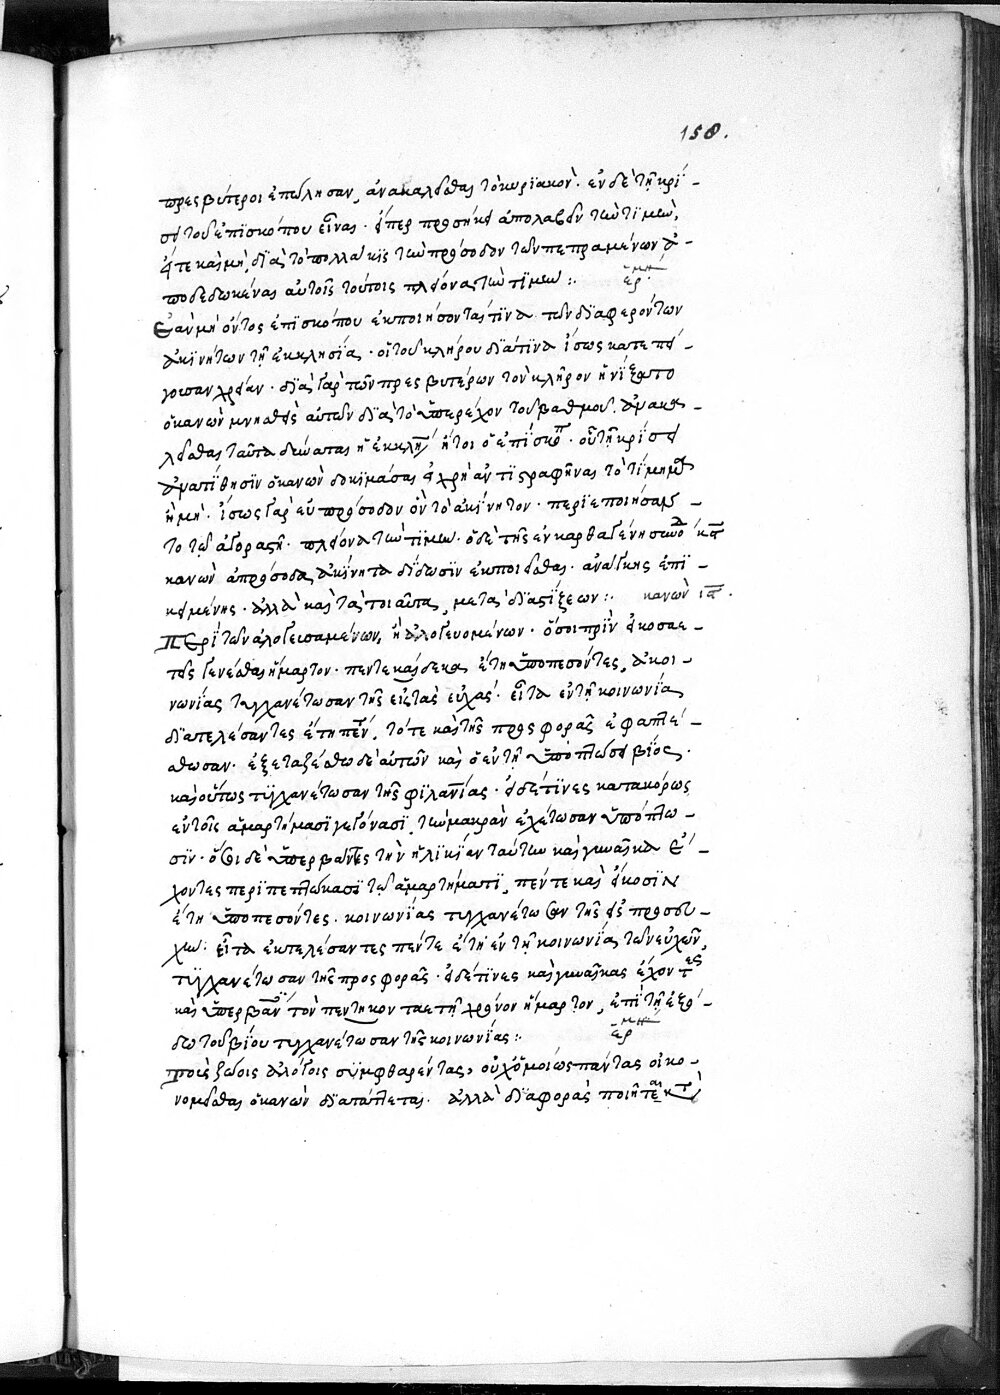 158.
πρεσβύτεροι ἐπώλησαν, ἀνακαλεῖσθαι τὸ κυριακόν· ἐν δὲ τῇ κρί-
σει τοῦ ἐπισκόπου εἶναι· εἴπερ προσήκει ἀπολαβεῖν τὴν τιμὴν,
εἴτε καὶ μὴ, διὰ τὸ πολλάκις τὴν πρόσοδον τῶν πεπραμένων ἀ-
ποδεδωκέναι αὐτοῖς τούτοις πλείονα τὴν τιμήν:·
ἑρμη
Ἐὰν μὴ ὄντος ἐπισκόπου ἐκποιήσονταί τινα τῶν διαφερόντων
ἀκινήτων τῇ ἐκκλησίᾳ· οἱ τοῦ κλήρου διά τινα ἴσως κατεπεί-
γουσαν χρείαν· διὰ γὰρ τῶν πρεσβυτέρων τὸν κλῆρον ᾐνίξατο
ὁ κανὼν μνησθεὶς αὐτῶν διὰ τὸ ὑπερέχον τοῦ βαθμοῦ. ἀνακα-
λεῖσθαι ταῦτα δύναται ἡ ἐκκλη ἤτοι ὁ ἐπίσκοπ· οὗ τῇ κρίσει
ἀνατίθησιν ὁ κανὼν δοκιμάσαι εἰ χρὴ ἀντιστραφῆναι τὸ τίμημα
ἢ μή· ἴσως γὰρ εὐπρόσοδον ὂν τὸ ἀκίνητον· περιεποιήσα-
το τῷ ἀγοραστῇ· πλείονα τὴν τιμήν· ὁ δὲ τῆς ἐν καρθαγένῃ συνόδ κϛ
κανὼν ἀπρόσοδα ἀκίνητα δίδωσιν ἐκποιεῖσθαι· ἀνάγκης ἐπι-
κειμένης· ἀλλὰ καὶ τὰ τοιαῦτα, μετὰ διασκέψεων:·
κανὼν ιϛ.
Περὶ τῶν ἀλογευσαμένων, ἢ ἀλογευομένων· ὅσοι πρὶν εἰκοσαε-
τεῖς γενέσθαι ἥμαρτον· πέντε καὶ δέκα ἔτη ὑποπεσόντες, ἀκοι-
νωνίας τυγχανέτωσαν τῆς εἰς τὰς εὐχάς· εἶτα ἐν τῇ κοινωνίᾳ
διατελέσαντες ἔτη πέντ, τότε καὶ τῆς προσφορᾶς ἐφαπτέ-
σθωσαν· ἐξεταζέσθω δὲ αὐτῶν καὶ ὁ ἐν τῇ ὑποπτώσει βίος·
καὶ οὕτως τυγχανέτωσαν τῆς φιλανίας· εἰ δέ τινες κατακόρως
ἐν τοῖς ἁμαρτήμασι γεγόνασι, τὴν μακρὰν ἐχέτωσαν ὑπόπτω-
σιν· ὅσοι δὲ ὑπερβάντες τὴν ἡλικίαν ταύτην καὶ γυναῖκα ἔ-
χοντες περιπεπτώκασι τῷ ἁμαρτήματι, πέντε καὶ εἴκοσιν
ἔτη ὑποπεσόντες· κοινωνίας τυγχανέτωσαν τῆς εἰς προσευ-
χὴν· εἶτα ἐκτελέσαντες πέντε ἔτη ἐν τῇ κοινωνίᾳ τῶν εὐχῶν,
τυγχανέτωσαν τῆς προσφορᾶς· εἰ δέ τινες καὶ γυναῖκας ἔχοντες
καὶ ὑπερβάν τὸν πεντηκονταετῆ χρόνον ἥμαρτον, ἐπὶ τῇ ἐξό-
δῳ τοῦ βίου τυγχανέτωσαν τῆς κοινωνίας:·
ἑρμη
Τοὺς ζώοις ἀλόγοις συμφθαρέντας, οὐχ ὁμοίως πάντας οἰκο-
νομεῖσθαι ὁ κανὼν διατάττεται· ἀλλὰ διαφορὰς ποιῆται κατὰ